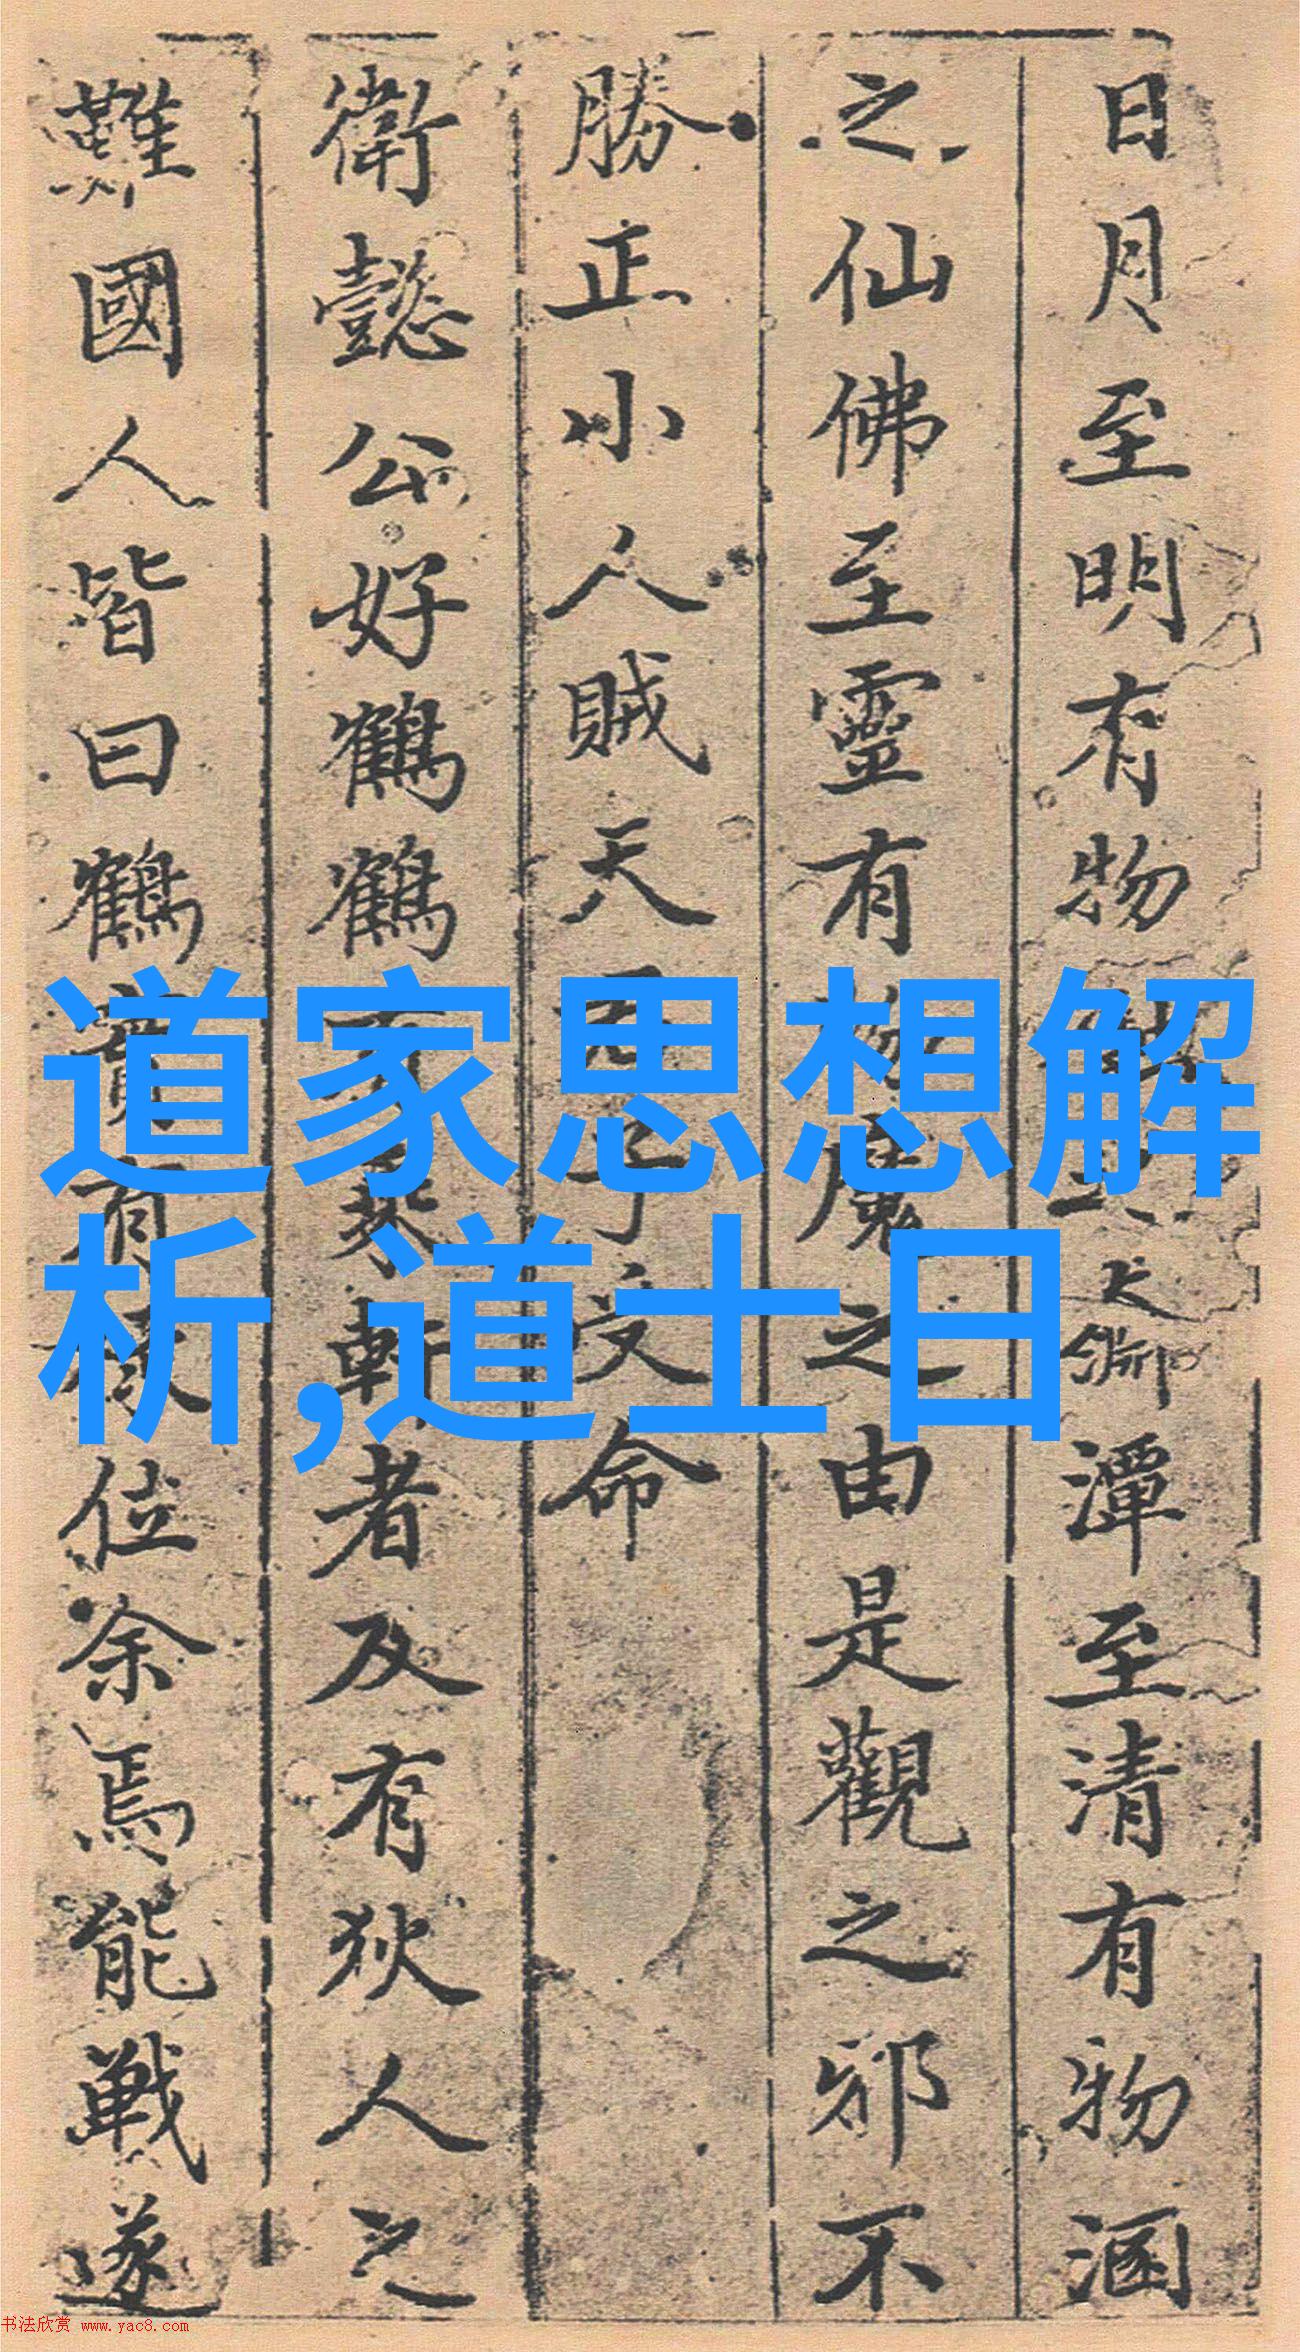 日月至明有物之大淵潭至清有物涵
之仙佛至靈有物魔之由是觀之邪不
勝正小人賊天子受命
衛懿公好鶴鶴乘軒者及有狄人之
難國人皆曰鶴實有位余焉能戰遂
道家思想解
析,道士日
书法欣赏 www.yac8.com